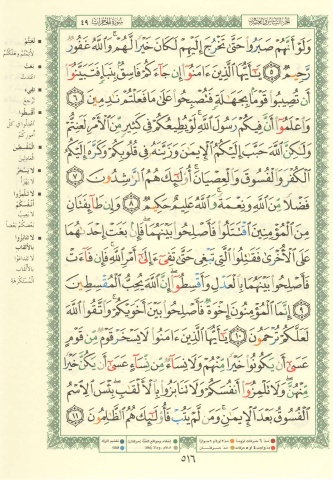 الجزء السادس والعشرون
سورة الحجرات ٤٩
وَلَوْ أَنَّهُمْ صَبَرُوا حَتَّىٰ تَخْرُجَ إِلَيْهِمْ لَكَانَ خَيْرًا لَّهُمْ وَاللَّهُ غَفُورٌ
رَّحِيمٌ ٥ يَا أَيُّهَا الَّذِينَ آمَنُوا إِن جَاءَكُمْ فَاسِقٌ بِنَبَإٍ فَتَبَيَّنُوا
أَن تُصِيبُوا قَوْمًا بِجَهَالَةٍ فَتُصْبِحُوا عَلَىٰ مَا فَعَلْتُمْ نَادِمِينَ ٦
وَاعْلَمُوا أَنَّ فِيكُمْ رَسُولَ اللَّهِ لَوْ يُطِيعُكُمْ فِي كَثِيرٍ مِّنَ الْأَمْرِ لَعَنِتُّمْ
وَلَٰكِنَّ اللَّهَ حَبَّبَ إِلَيْكُمُ الْإِيمَانَ وَزَيَّنَهُ فِي قُلُوبِكُمْ وَكَرَّهَ إِلَيْكُمُ
الْكُفْرَ وَالْفُسُوقَ وَالْعِصْيَانَ أُولَٰئِكَ هُمُ الرَّاشِدُونَ ٧
فَضْلًا مِّنَ اللَّهِ وَنِعْمَةً وَاللَّهُ عَلِيمٌ حَكِيمٌ ٨ وَإِن طَائِفَتَانِ
مِنَ الْمُؤْمِنِينَ اقْتَتَلُوا فَأَصْلِحُوا بَيْنَهُمَا فَإِن بَغَتْ إِحْدَاهُمَا
عَلَى الْأُخْرَىٰ فَقَاتِلُوا الَّتِي تَبْغِي حَتَّىٰ تَفِيءَ إِلَىٰ أَمْرِ اللَّهِ فَإِن فَاءَتْ
فَأَصْلِحُوا بَيْنَهُمَا بِالْعَدْلِ وَأَقْسِطُوا إِنَّ اللَّهَ يُحِبُّ الْمُقْسِطِينَ
٩ إِنَّمَا الْمُؤْمِنُونَ إِخْوَةٌ فَأَصْلِحُوا بَيْنَ أَخَوَيْكُمْ وَاتَّقُوا اللَّهَ
لَعَلَّكُمْ تُرْحَمُونَ ١٠ يَا أَيُّهَا الَّذِينَ آمَنُوا لَا يَسْخَرْ قَوْمٌ مِّن قَوْمٍ
عَسَىٰ أَن يَكُونُوا خَيْرًا مِّنْهُمْ وَلَا نِسَاءٌ مِّن نِّسَاءٍ عَسَىٰ أَن يَكُنَّ خَيْرًا
مِّنْهُنَّ وَلَا تَلْمِزُوا أَنفُسَكُمْ وَلَا تَنَابَزُوا بِالْأَلْقَابِ بِئْسَ الِاسْمُ
الْفُسُوقُ بَعْدَ الْإِيمَانِ وَمَن لَّمْ يَتُبْ فَأُولَٰئِكَ هُمُ الظَّالِمُونَ ١١
٥١٦